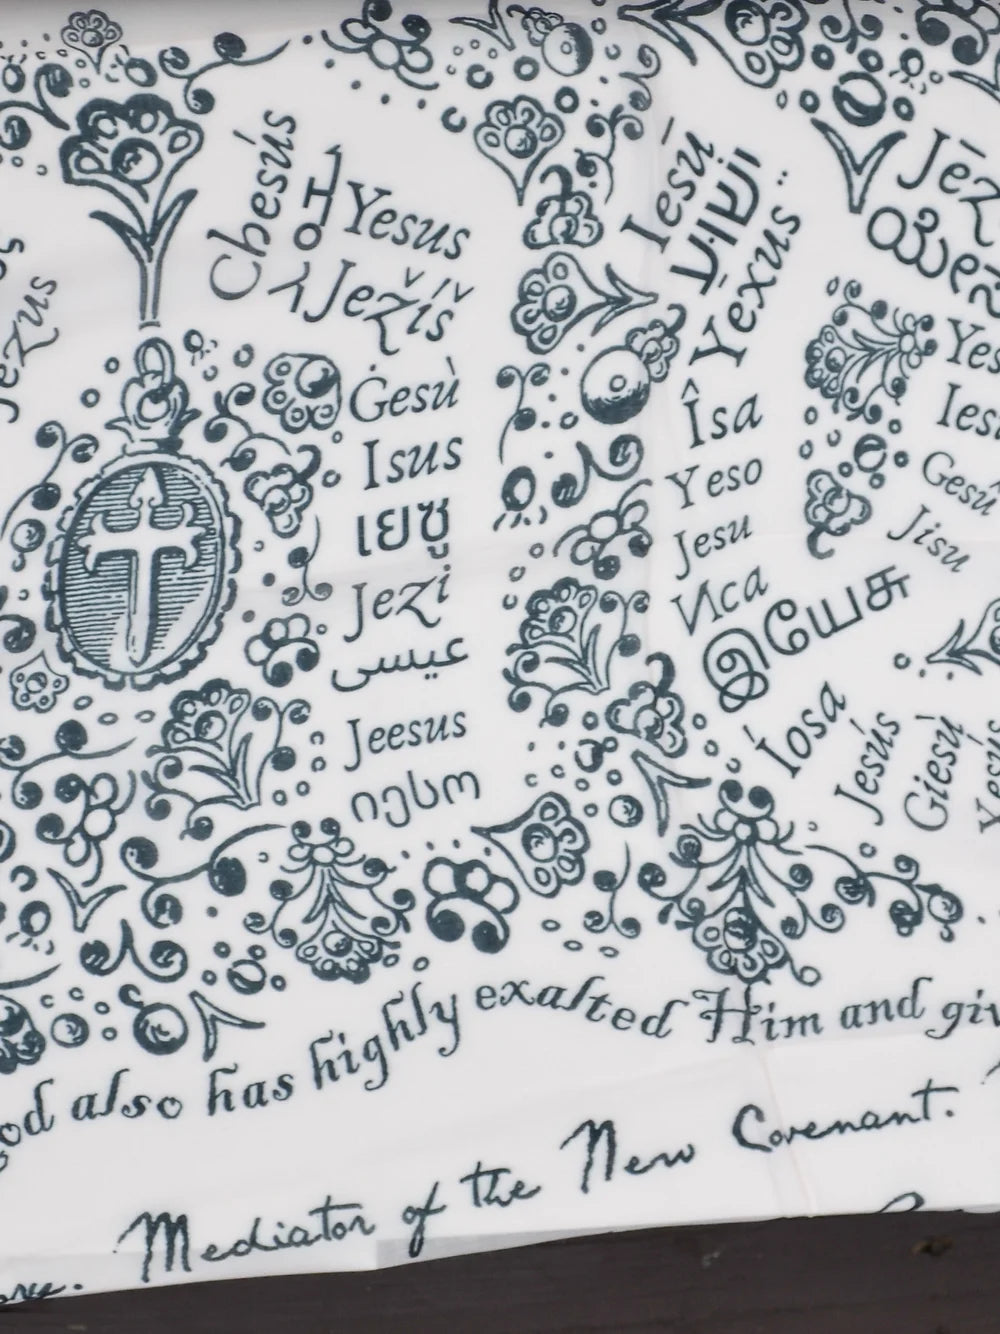 Chesús
ㅎ
Yesus
Ježíš
Ġesù
Isus
เยซู
Jezi
عيسى
Jeesus
იესო
Iesū
ישוע
Yëxus
Îsa
Yeso
Jesu
Иса
இயேசு
Íosa
Jesús
Giesù
Jisu
Jezus
God also has highly exalted Him and giv
Mediator of the New Covenant.